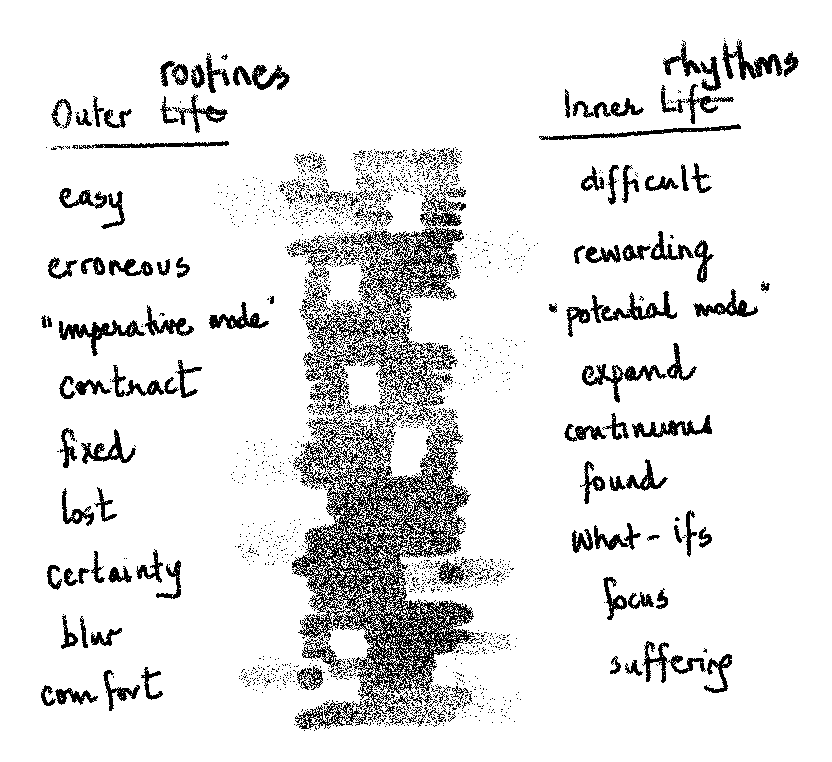 routines
Outer Life
easy
erroneous
"imperative mode"
contract
fixed
lost
certainty
blur
comfort
rhythms
Inner Life
difficult
rewarding
"potential mode"
expand
continuous
found
what-ifs
focus
suffering